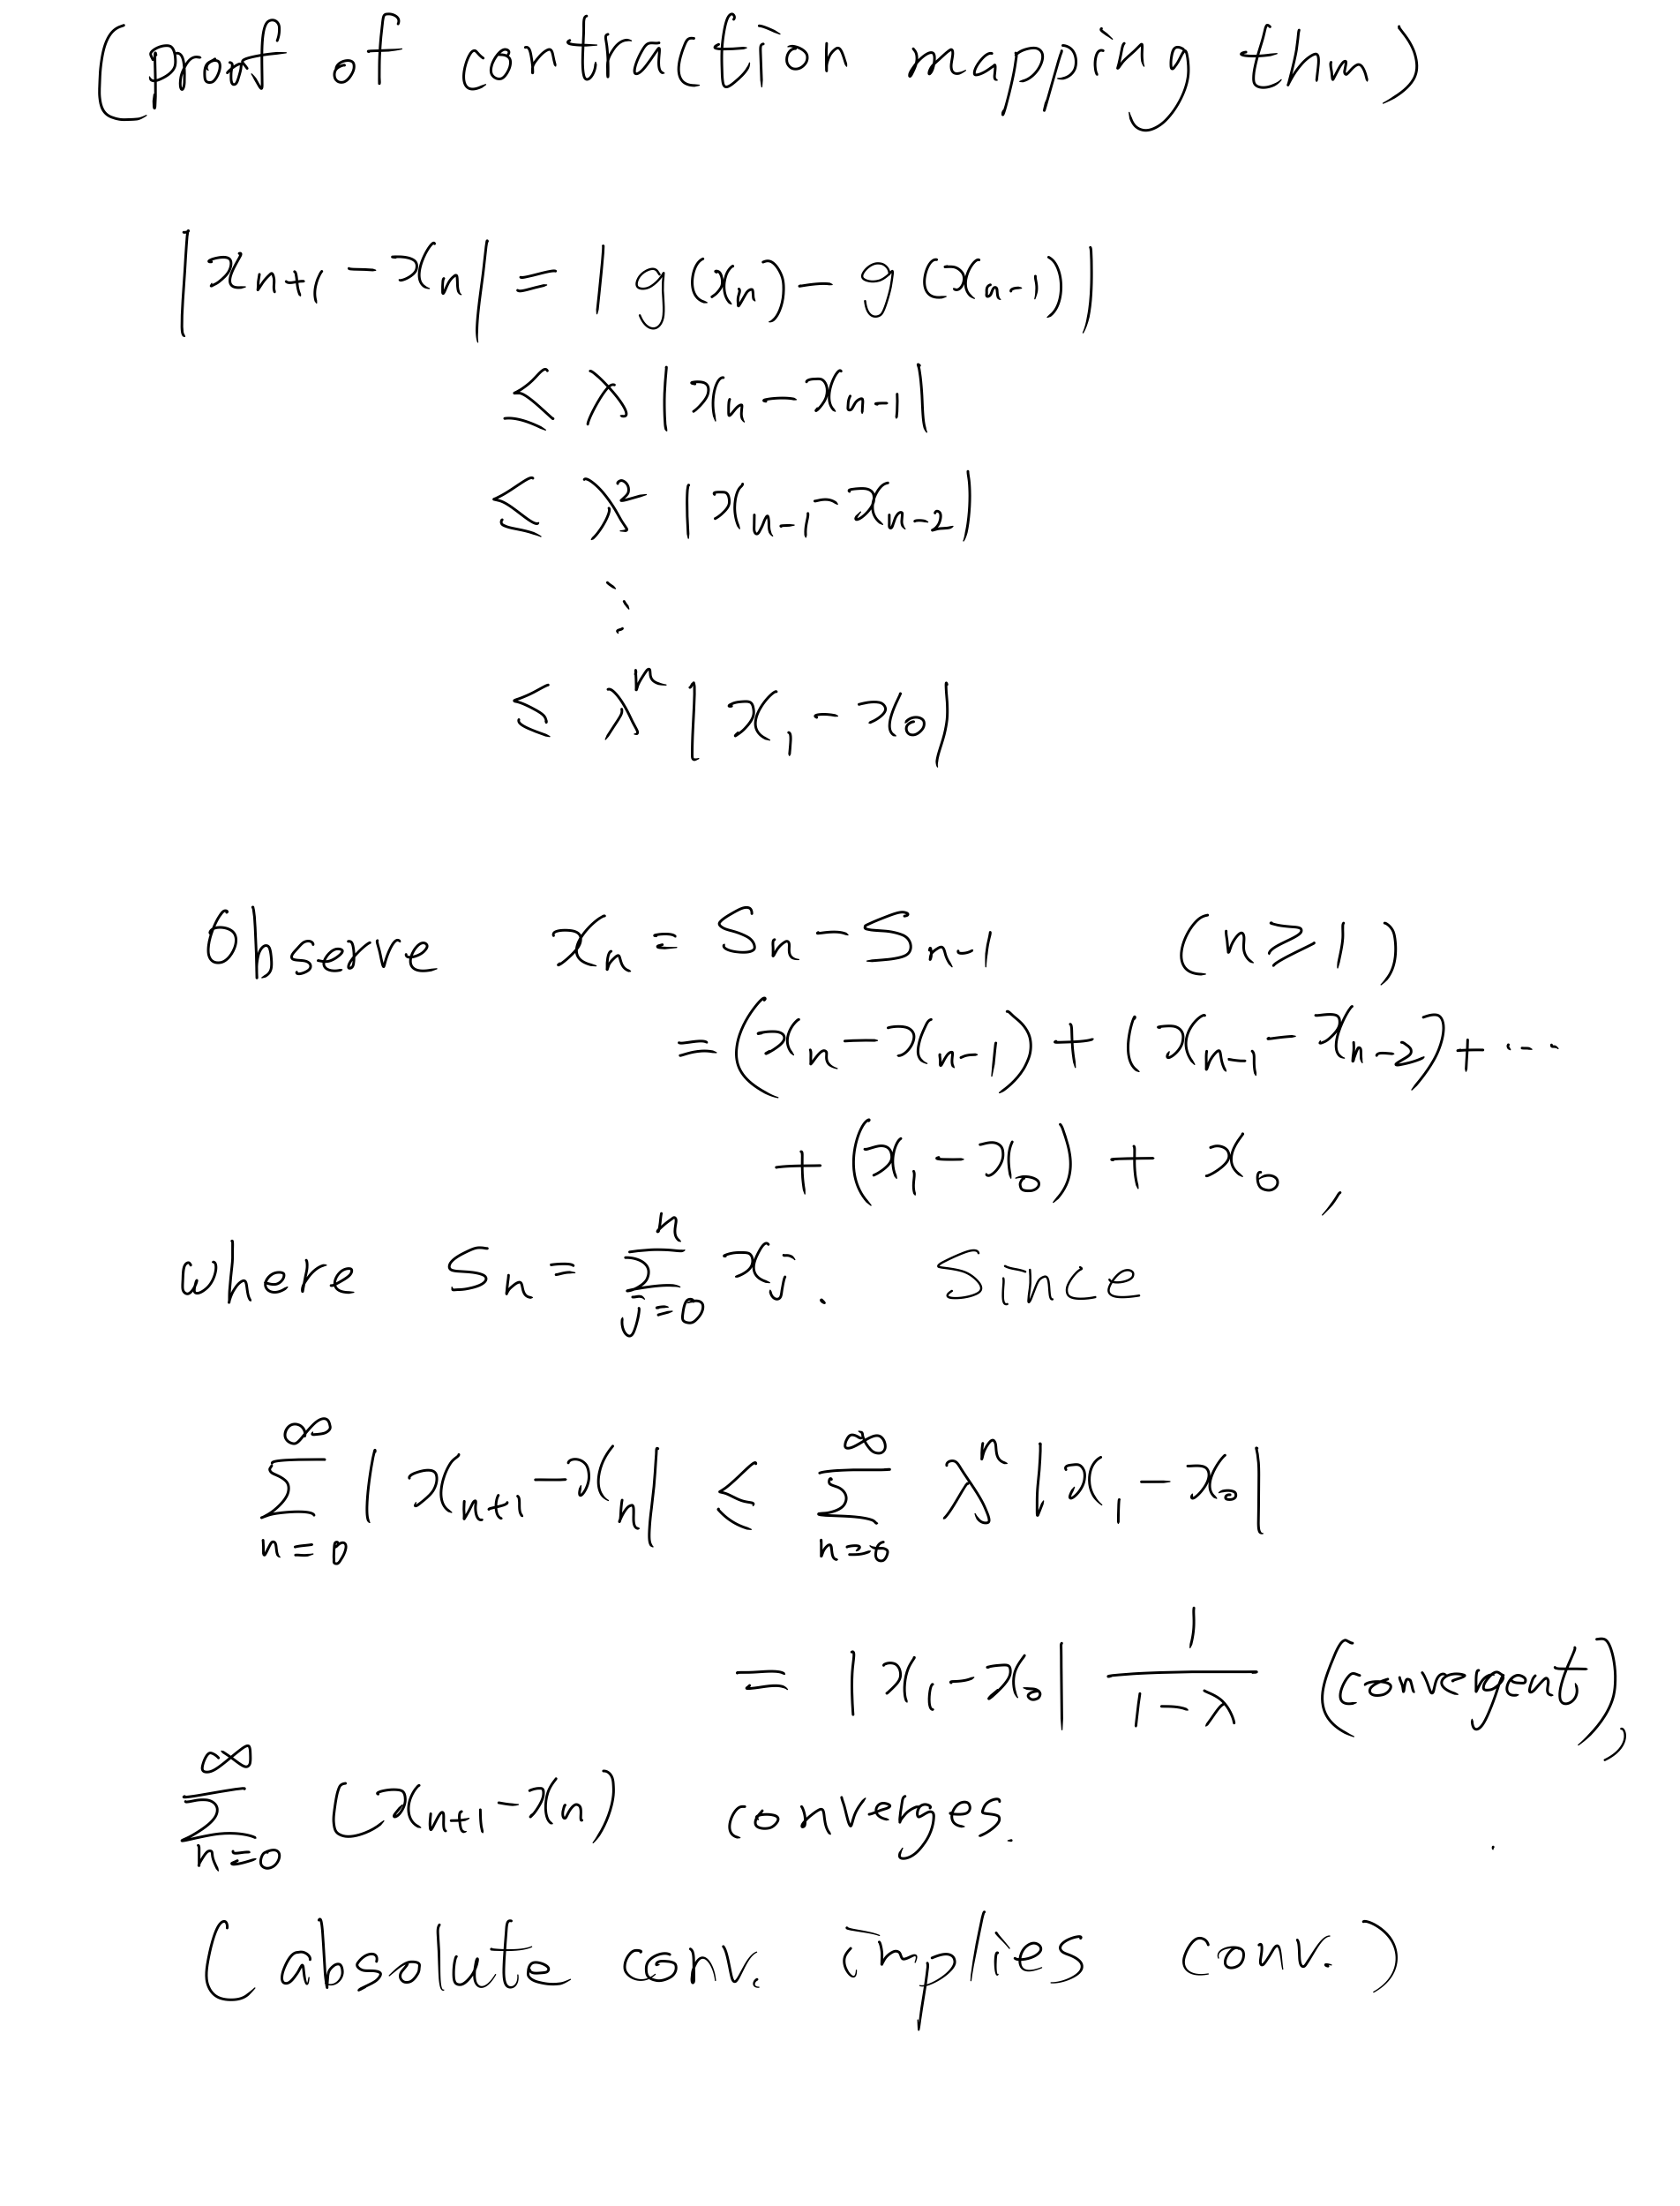 (proof of contraction mapping thm)
|x_{n+1} - x_n| = |g(x_n) - g(x_{n-1})|
≤ λ |x_n - x_{n-1}|
≤ λ² |x_{n-1} - x_{n-2}|
⋮
≤ λ^n |x_1 - x_0|
Observe x_n = S_n - S_{n-1} (n ≥ 1)
= (x_n - x_{n-1}) + (x_{n-1} - x_{n-2}) + ...
+ (x_1 - x_0) + x_0,
where S_n = Σ_{j=0}^{n} x_j. Since
Σ_{n=0}^{∞} |x_{n+1} - x_n| ≤ Σ_{n=0}^{∞} λ^n |x_1 - x_0|
= |x_1 - x_0| \frac{1}{1-λ} (convergent),
Σ_{n=0}^{∞} (x_{n+1} - x_n) converges.
(absolute conv. implies conv.)